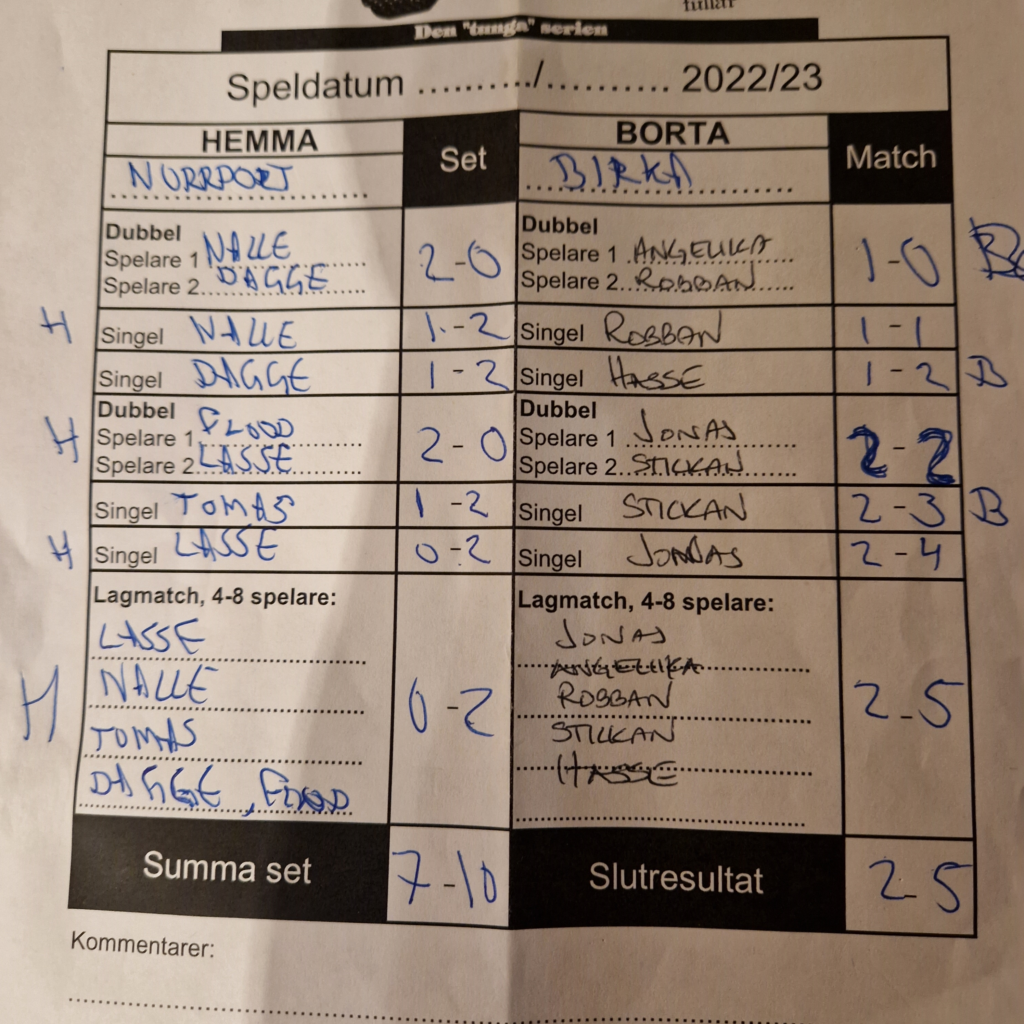 fullar
Den "tunga" serien
Speldatum ........./.......... 2022/23
HEMMA Set BORTA Match
NORRPORT BIRKA
Dubbel Dubbel
Spelare 1 NALLE 2-0 Spelare 1 ANGELIKA 1-0
Spelare 2 DAGGE Spelare 2 ROBBAN
H Singel NALLE 1-2 Singel ROBBAN 1-1
Singel DAGGE 1-2 Singel HASSE 1-2 B
Dubbel Dubbel
H Spelare 1 FLOOD 2-0 Spelare 1 JONAS 2-2
Spelare 2 LASSE Spelare 2 STICKAN
Singel TOMAS 1-2 Singel STICKAN 2-3 B
H Singel LASSE 0-2 Singel JONAS 2-4
Lagmatch, 4-8 spelare: Lagmatch, 4-8 spelare:
LASSE JONAS
ANGELIKA
H NALLE 0-2 ROBBAN 2-5
TOMAS STICKAN
DAGGE, FLOOD HASSE
Summa set 7-10 Slutresultat 2-5
Kommentarer: